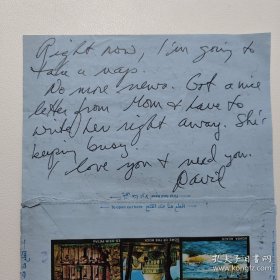 Right now, I'm going to
take a nap.
No more news. Got a nice
letter from Mom & have to
write her right away. She's
keeping busy.
I love you & need you.
David